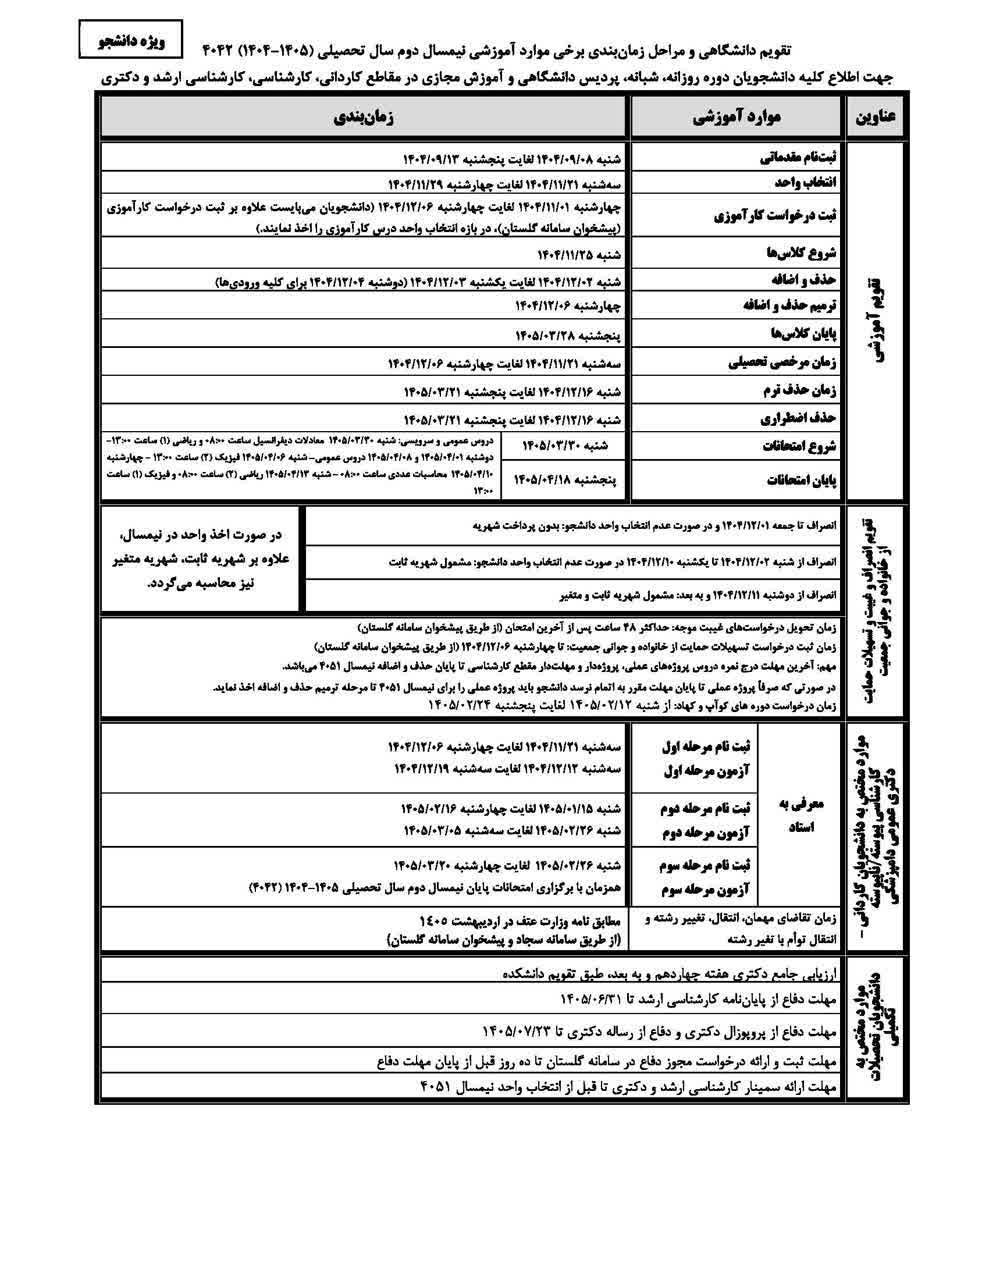 ویژه دانشجو
تقویم دانشگاهی و مراحل زمان‌بندی برخی موارد آموزشی نیمسال دوم سال تحصیلی (۱۴۰۵-۱۴۰۴) ۴۰۴۲
جهت اطلاع کلیه دانشجویان دوره روزانه، شبانه، پردیس دانشگاهی و آموزش مجازی در مقاطع کاردانی، کارشناسی، کارشناسی ارشد و دکتری
عناوین موارد آموزشی زمان‌بندی
تقویم آموزشی
ثبت‌نام مقدماتی شنبه ۱۴۰۴/۰۹/۰۸ لغایت پنجشنبه ۱۴۰۴/۰۹/۱۳
انتخاب واحد سه‌شنبه ۱۴۰۴/۱۱/۲۱ لغایت چهارشنبه ۱۴۰۴/۱۱/۲۹
ثبت درخواست کارآموزی چهارشنبه ۱۴۰۴/۱۱/۰۱ لغایت چهارشنبه ۱۴۰۴/۱۲/۰۶ (دانشجویان می‌بایست علاوه بر ثبت درخواست کارآموزی
(پیشخوان سامانه گلستان)، در بازه انتخاب واحد درس کارآموزی را اخذ نمایند.)
شروع کلاس‌ها شنبه ۱۴۰۴/۱۱/۲۵
حذف و اضافه شنبه ۱۴۰۴/۱۲/۰۲ لغایت یکشنبه ۱۴۰۴/۱۲/۰۳ (دوشنبه ۱۴۰۴/۱۲/۰۴ برای کلیه ورودی‌ها)
ترمیم حذف و اضافه چهارشنبه ۱۴۰۴/۱۲/۰۶
پایان کلاس‌ها پنجشنبه ۱۴۰۵/۰۳/۲۸
زمان مرخصی تحصیلی سه‌شنبه ۱۴۰۴/۱۱/۲۱ لغایت چهارشنبه ۱۴۰۴/۱۲/۰۶
زمان حذف ترم شنبه ۱۴۰۴/۱۲/۱۶ لغایت پنجشنبه ۱۴۰۵/۰۳/۲۱
حذف اضطراری شنبه ۱۴۰۴/۱۲/۱۶ لغایت پنجشنبه ۱۴۰۵/۰۳/۲۱
شروع امتحانات شنبه ۱۴۰۵/۰۳/۳۰
پایان امتحانات پنجشنبه ۱۴۰۵/۰۴/۱۸
دروس عمومی و سرویسی: شنبه ۱۴۰۵/۰۳/۳۰ معادلات دیفرانسیل ساعت ۰۸:۰۰ و ریاضی (۱) ساعت ۱۳:۰۰-
دوشنبه ۱۴۰۵/۰۴/۰۱ و ۱۴۰۵/۰۴/۰۸ دروس عمومی- شنبه ۱۴۰۵/۰۴/۰۶ فیزیک (۲) ساعت ۱۳:۰۰ - چهارشنبه
۱۴۰۵/۰۴/۱۰ محاسبات عددی ساعت ۰۸:۰۰ - شنبه ۱۴۰۵/۰۴/۱۳ ریاضی (۲) ساعت ۰۸:۰۰ و فیزیک (۱) ساعت
۱۳:۰۰
تقویم انصراف و غیبت و تسهیلات حمایت
از خانواده و جوانی جمعیت
انصراف تا جمعه ۱۴۰۴/۱۲/۰۱ و در صورت عدم انتخاب واحد دانشجو: بدون پرداخت شهریه
انصراف از شنبه ۱۴۰۴/۱۲/۰۲ تا یکشنبه ۱۴۰۴/۱۲/۱۰ در صورت عدم انتخاب واحد دانشجو: مشمول شهریه ثابت
انصراف از دوشنبه ۱۴۰۴/۱۲/۱۱ و به بعد: مشمول شهریه ثابت و متغیر
در صورت اخذ واحد در نیمسال،
علاوه بر شهریه ثابت، شهریه متغیر
نیز محاسبه می‌گردد.
زمان تحویل درخواست‌های غیبت موجه: حداکثر ۴۸ ساعت پس از آخرین امتحان (از طریق پیشخوان سامانه گلستان)
زمان ثبت درخواست تسهیلات حمایت از خانواده و جوانی جمعیت: تا چهارشنبه ۱۴۰۴/۱۲/۰۶ (از طریق پیشخوان سامانه گلستان)
مهم: آخرین مهلت درج نمره دروس پروژه‌های عملی، پروژه‌دار و مهلت‌دار مقطع کارشناسی تا پایان حذف و اضافه نیمسال ۴۰۵۱ می‌باشد.
در صورتی که صرفاً پروژه عملی تا پایان مهلت مقرر به اتمام نرسد دانشجو باید پروژه عملی را برای نیمسال ۴۰۵۱ تا مرحله ترمیم حذف و اضافه اخذ نماید.
زمان درخواست دوره های کوآپ و کهاد: از شنبه ۱۴۰۵/۰۲/۱۲ لغایت پنجشنبه ۱۴۰۵/۰۲/۲۴
موارد مختص به دانشجویان کاردانی -
کارشناسی پیوسته/ناپیوسته
دکتری عمومی دامپزشکی
معرفی به
استاد
ثبت نام مرحله اول سه‌شنبه ۱۴۰۴/۱۱/۲۱ لغایت چهارشنبه ۱۴۰۴/۱۲/۰۶
آزمون مرحله اول سه‌شنبه ۱۴۰۴/۱۲/۱۲ لغایت سه‌شنبه ۱۴۰۴/۱۲/۱۹
ثبت نام مرحله دوم شنبه ۱۴۰۵/۰۱/۱۵ لغایت چهارشنبه ۱۴۰۵/۰۲/۱۶
آزمون مرحله دوم شنبه ۱۴۰۵/۰۲/۲۶ لغایت سه‌شنبه ۱۴۰۵/۰۳/۰۵
ثبت نام مرحله سوم شنبه ۱۴۰۵/۰۲/۲۶ لغایت چهارشنبه ۱۴۰۵/۰۳/۲۰
آزمون مرحله سوم همزمان با برگزاری امتحانات پایان نیمسال دوم سال تحصیلی ۱۴۰۵-۱۴۰۴ (۴۰۴۲)
زمان تقاضای مهمان، انتقال، تغییر رشته و مطابق نامه وزارت عتف در اردیبهشت ۱۴۰۵
انتقال توأم با تغیر رشته (از طریق سامانه سجاد و پیشخوان سامانه گلستان)
موارد مختص به
دانشجویان تحصیلات
تکمیلی
ارزیابی جامع دکتری هفته چهاردهم و به بعد، طبق تقویم دانشکده
مهلت دفاع از پایان‌نامه کارشناسی ارشد تا ۱۴۰۵/۰۶/۳۱
مهلت دفاع از پروپوزال دکتری و دفاع از رساله دکتری تا ۱۴۰۵/۰۷/۲۳
مهلت ثبت و ارائه درخواست مجوز دفاع در سامانه گلستان تا ده روز قبل از پایان مهلت دفاع
مهلت ارائه سمینار کارشناسی ارشد و دکتری تا قبل از انتخاب واحد نیمسال ۴۰۵۱